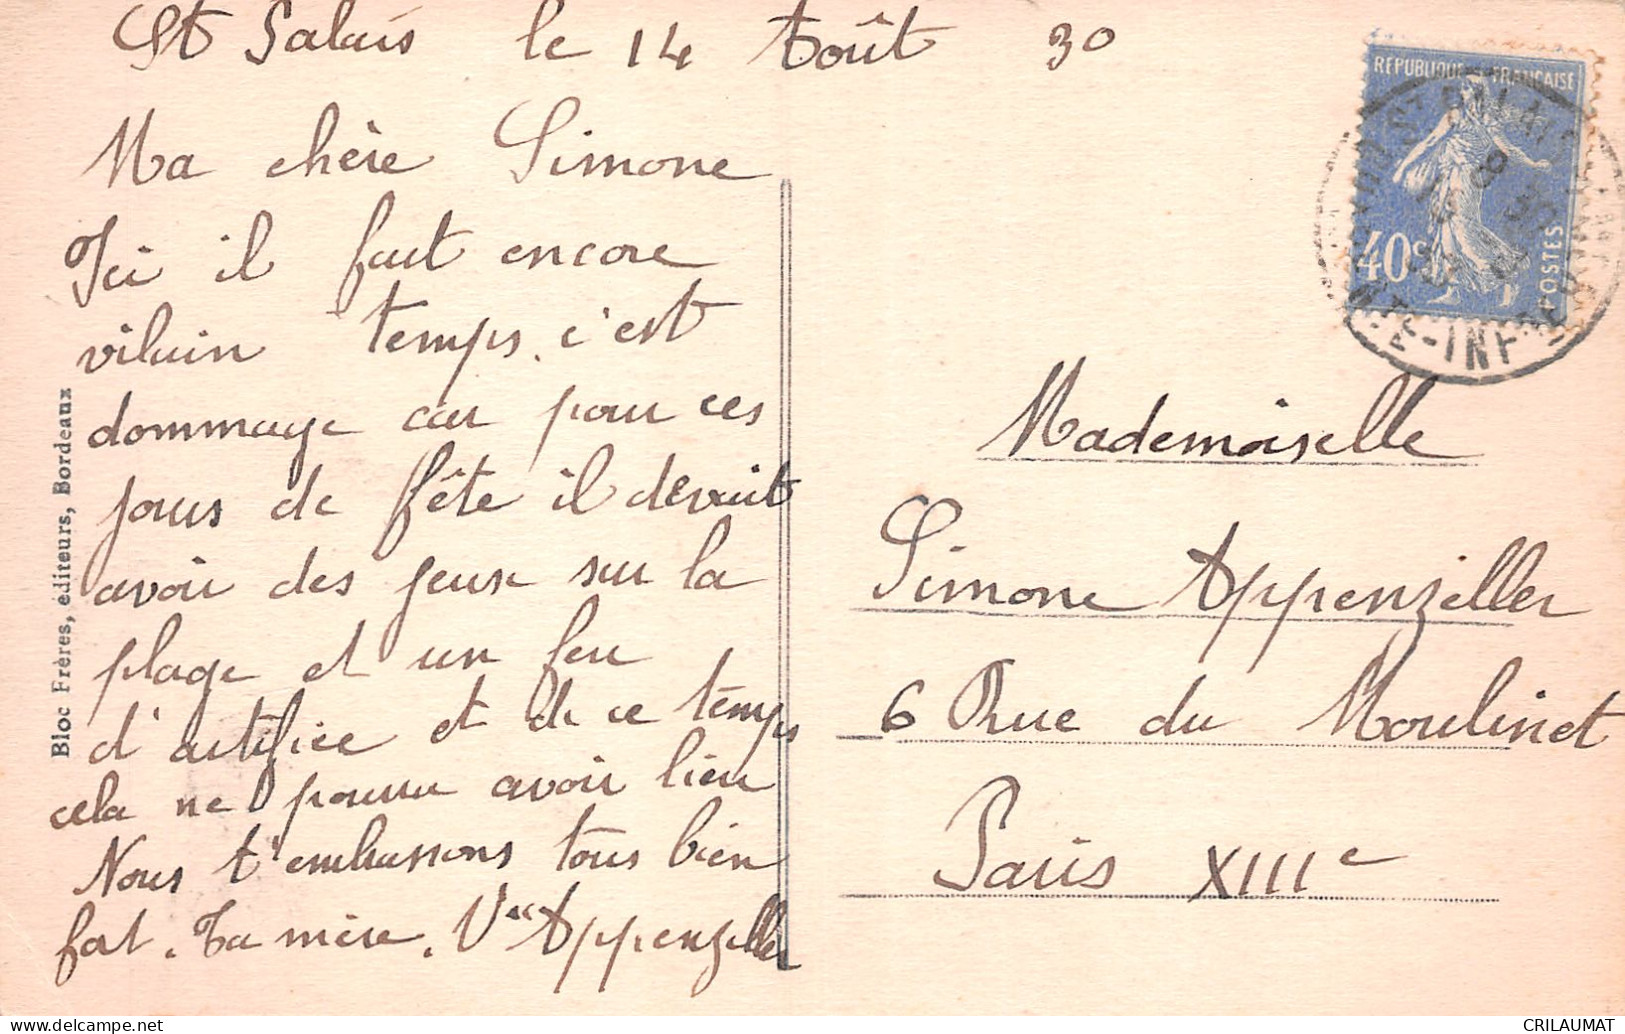 St Palais le 14 Août 30
Ma chère Simone
Ici il fait encore
vilain temps. c'est
dommage car pour ces
jours de fête il devrait
avoir des jeux sur la
plage et un feu
d'artifice et de ce temps
cela ne pourra avoir lieu
Nous t'embrassons tous bien
fort. Ta mère. Vve Appenzeller
Bloc Frères, éditeurs, Bordeaux
REPUBLIQUE FRANÇAISE
40c
POSTES
Mademoiselle
Simone Appenzeller
6 Rue du Moulinet
Paris XIIIe
CRILAUMAT